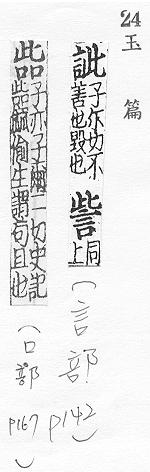 24
玉篇
訿 子尔切不善也毀也 訾 同上 (言部 P142)
啙 子亦子爾二切史記啙窳偷生謂句且也 (口部 P167)